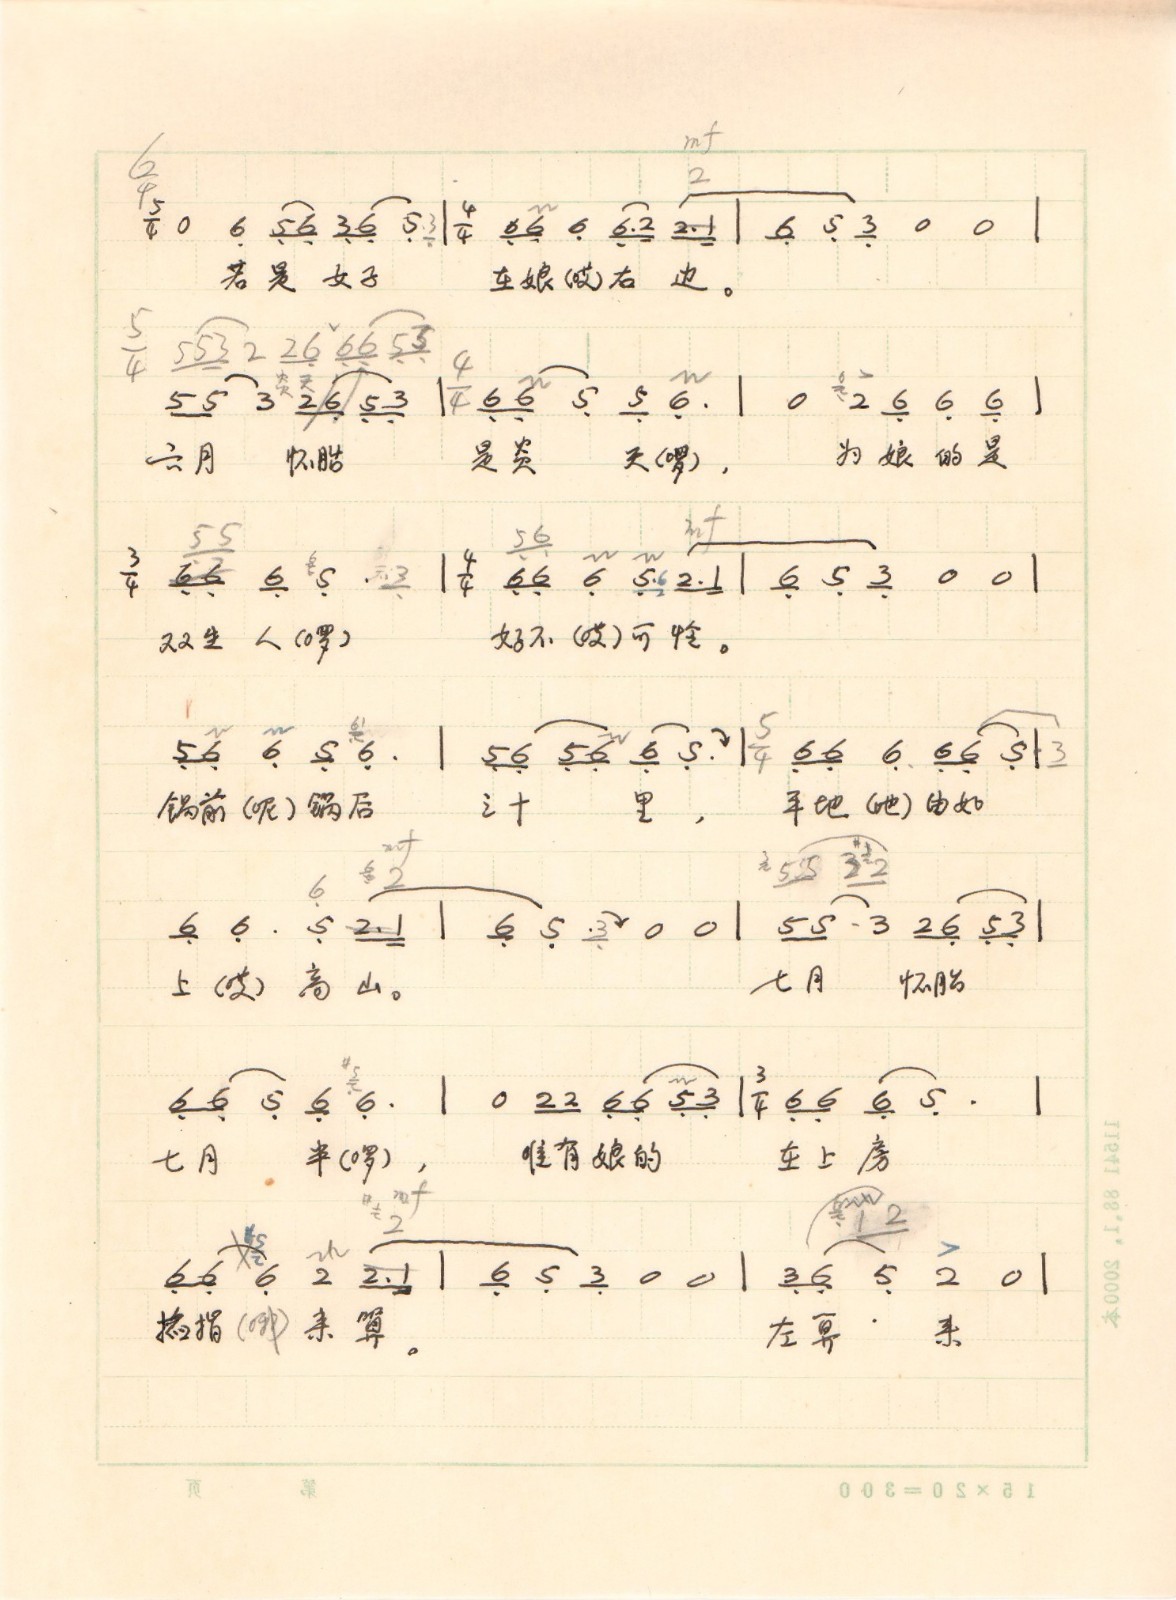 6/4 mf 2
5/4 0 6 56 36 5.3 | 4/4 66 6 6.2 2.1 | 6 5 3 0 0 |
若是女子 在娘(哎)右边。
5/4 553 2 26 66 53
炎天 4/4
55 3 26 53 | 66 5 5 6. | 0 2 6 6 6 |
六月 怀胎 是炎 天(啰), 为娘的是
55 56 mf
3/4 66 6 5 . 3 | 4/4 66 6 5.6 2.1 | 6 5 3 0 0 |
双生人(啰) 好不(哎)可怜。
56 6 5 6. | 56 56 6 5. | 5/4 66 6. 66 5 | 3
锅前(呢)锅后 三十 里, 平地(吔)由如
6 mf 2 55 32
6 6. 5 2.1 | 6 5 .3 0 0 | 55 . 3 26 53 |
上(哎)高山。 七月 怀胎
66 5 6 6. | 0 22 66 53 | 3/4 66 6 5. |
七月 半(啰), 唯有娘的 在上房
mf 2 12
66 6 2 2.1 | 6 5 3 0 0 | 36 5 2 0 |
掐指 来算。 左算 来
第 页
15×20=300
11541 88.1. 2000本